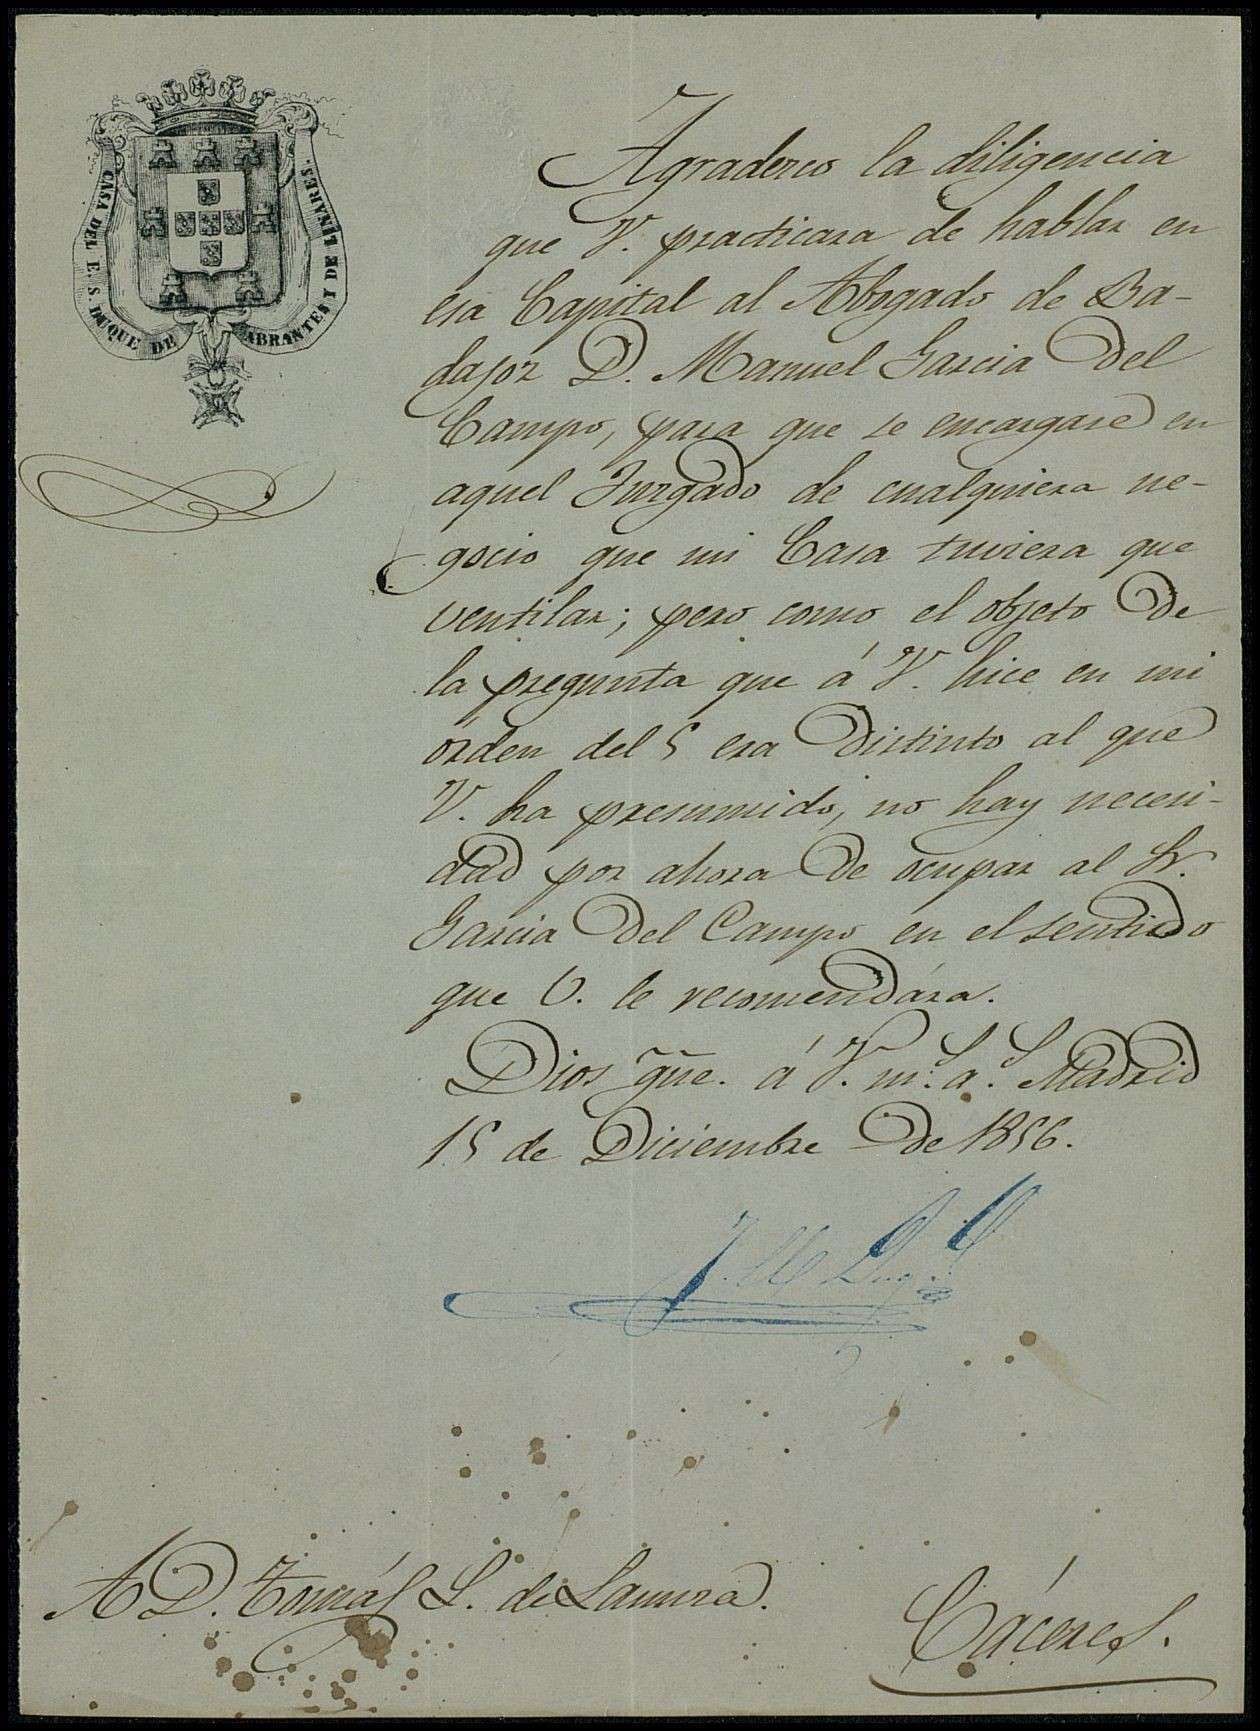 CASA DEL E. S. DUQUE DE ABRANTES Y DE LINARES.
Agradezco la diligencia
que V. practicara de hablar en
esa Capital al Abogado de Ba-
dajoz D. Manuel Garcia del
Campo, para que se encargase en
aquel Juzgado de cualquiera ne-
gocio que mi Casa tuviera que
ventilar; pero como el objeto de
la pregunta que á V. hice en mi
órden del 5 era distinto al que
V. ha presumido, no hay necesi-
dad por ahora de ocupar al Sr.
Garcia del Campo en el sentido
que V. le recomendára.
Dios gũe. á V. m.s a.s Madrid
15 de Diciembre de 1856.
A D. Tomás L. de
Cáceres.